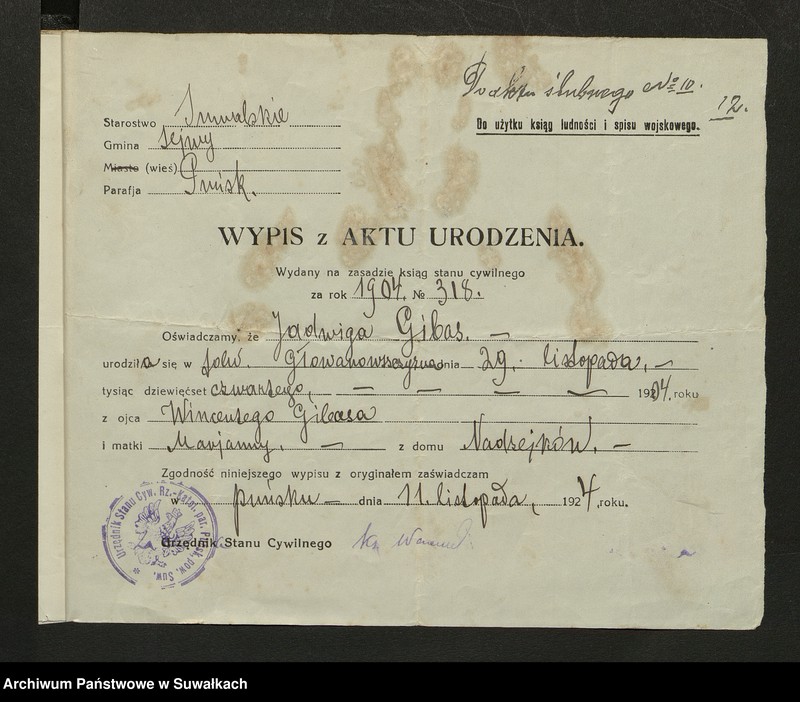 Do aktu ślubnego № 10.
12.
Do użytku ksiąg ludności i spisu wojskowego.
Starostwo Suwalskie
Gmina Sejwy
Miasto (wieś)
Parafja Puńsk.
WYPIS z AKTU URODZENIA.
Wydany na zasadzie ksiąg stanu cywilnego
za rok 1904. № 318.
Oświadczamy, że Jadwiga Gibas. —
urodziła się w folw. dnia 29. listopada, —
tysiąc dziewięćset czwartego, — — — — 1904, roku
z ojca Wincentego Gibasa
i matki Marjanny. — z domu Nadzejków. —
Zgodność niniejszego wypisu z oryginałem zaświadczam
w Puńsku — dnia 11. listopada, 1924, roku.
Urzędnik Stanu Cywilnego Ks.
Urzędnik Stanu Cyw. Rz.-Katol. par. Puńsk, pow. Suw.
Archiwum Państwowe w Suwałkach